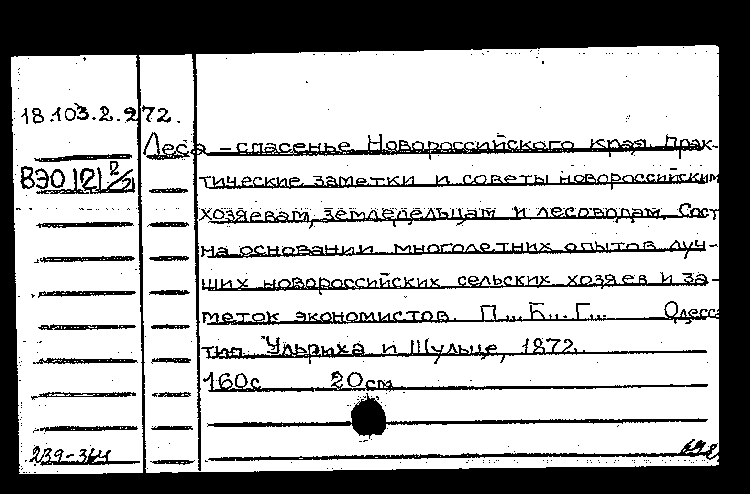 18.103.2.272.
Леса – спасенье Новороссийского края. Прак-
ВЭО 121 2/21
тические заметки и советы новороссийским
хозяевам, земледельцам и лесоводам. Сост
на основании многолетних опытов луч-
ших новороссийских сельских хозяев и за-
меток экономистов. П... Б... Г... Одесса
тип. Ульриха и Шульце, 1872.
160с 20см
239-364